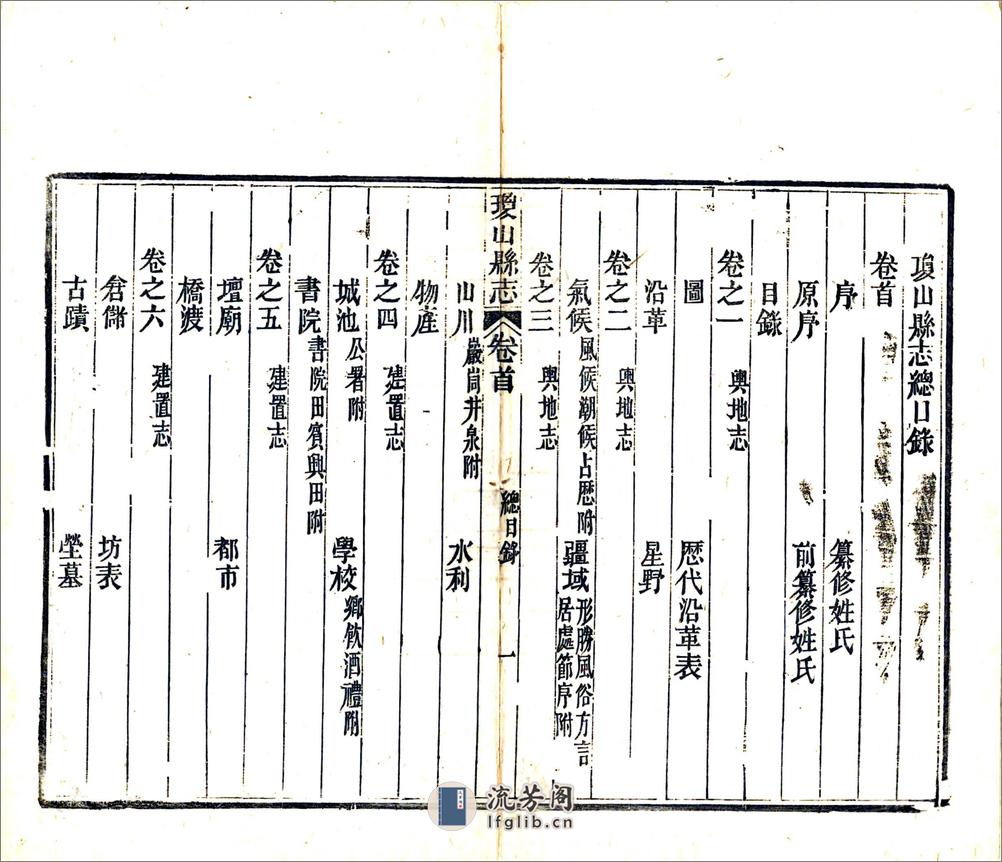 瓊山縣志總目錄
卷首
序 纂修姓氏
原序 前纂修姓氏
目錄
卷之一 輿地志
圖 歷代沿革表
沿革 星野
卷之二 輿地志
氣候 風候潮候占歷附 疆域 形勝風俗方言居處節序附
卷之三 輿地志
山川 巖峒井泉附 水利
物產
瓊山縣志 卷首 總目錄 一
卷之四 建置志
城池 公署附 學校 鄉飲酒禮附
書院 書院田賓興田附
卷之五 建置志
壇廟 都市
橋渡
卷之六 建置志
倉儲 坊表
古蹟 塋墓
流芳阁
lfglib.cn